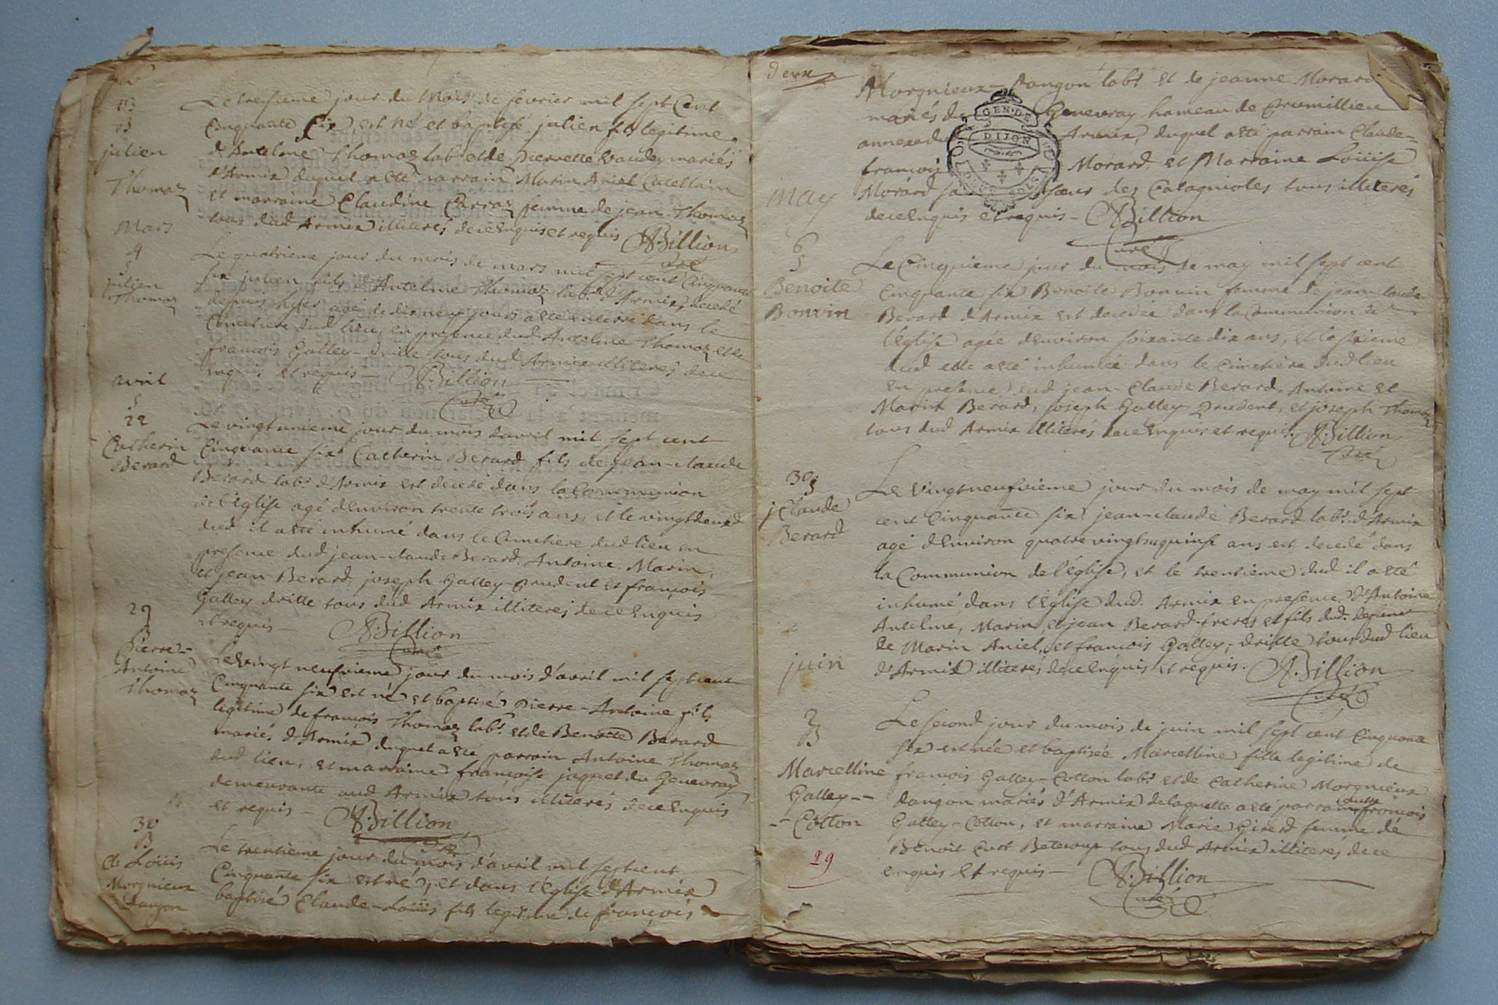 13
B
julien
Thomaz
Le treisieme jour du Mois de fevrier mil sept Cent
Cinquante Six est né et baptisé julien fils legitime
d'Antelme Thomaz labr et de pierrette mariés
d'Armix duquel a eté parrain Marin Aniel
et marraine Claudine femme de jean Thomaz
tous dud Armix illiteres de ce Enquis et requis ABillion
Curé
Mars
4
S
julien
Thomaz
Le quatrieme jour du mois de mars mil sept cent Cinquante
Six julien fils d'Antelme Thomaz labr d'Armix, decedé
depuis hyer agé de dix neuf jours a eté enterré dans le
Cimetiere dud lieu, en presence dud Antelme Thomaz et de
françois Galley-drille tous dud Armix illiteres de ce
enquis et requis - ABillion
Curé
avril
S
22
Catherin
Berard
Le vingtunieme jour du mois d'avril mil sept cent
Cinquante six Catherin Berard fils de jean-claude
Berard labr d'Armix est decedé dans la Communion
de l'Eglise agé d'environ trente trois ans, et le vingtdeuxe
dud il a eté inhumé dans le Cimetiere dud lieu en
presence dud jean-claude Berard, Antoine, Marin,
et jean Berard, joseph Galley-prudent et françois
Galley drille tous dud Armix illiteres de ce Enquis
et requis ABillion
Curé
29
B
Pierre-
Antoine
Thomaz
Le vingt neufvieme jour du mois d'avril mil sept cent
Cinquante six est né et baptisé Pierre-Antoine fils
legitime de françois Thomaz labr et de Benoite Berard
mariés d'Armix duquel a eté parrain Antoine Thomaz
dud lieu, et marraine françoise jaquet du Genevray
demeurante aud Armix tous illiteres de ce Enquis
et requis - ABillion
Curé
30
B
Cl Loüis
Morgnieux
Dangon
Le trentieme jour du mois d'avril mil sept cent
Cinquante six est né, et dans l'Eglise d'Armix
baptisé Claude-Loüis fils legitime de françois
deux
Morgnieux-Dangon labr et de jeanne Morard
mariés du Genevray hameau de Premillieu
annexe d Armix, duquel a eté parrain Claude-
françois Morard et Marraine Loüise
Morard sa soeur des Catagnoles tous illiteres
de ce enquis et requis - ABillion
Curé
GEN·DE
DIJON
may
6
S
Benoite
Bonvin
Le Cinquieme jour du mois de may mil sept cent
Cinquante six Benoite Bonvin femme de jean-claude
Berard d'Armix est decedée dans la Communion de
l'église agée d'environ soixante dix ans, et le sixieme
dud elle a eté inhumée dans le Cimetiere dud lieu
en presence dud jean-Claude Berard, Antoine et
Marin Berard, joseph Galley-prudent, et joseph Thomaz
tous dud Armix illiteres de ce Enquis et requis ABillion
Curé
30
S
j Claude
Berard
Le Vingtneufvieme jour du mois de may mil sept
cent Cinquante six jean-claude Berard labr d'Armix
agé d'Environ quatrevingt quinze ans est decedé dans
la Communion de l'église, et le trentieme dud il a eté
inhumé dans l'Eglise dud Armix en presence d'Antoine
Antelme, Marin et jean Berard freres et fils dud
de Marin Aniel, et françois Galley-drille tous dud lieu
d'Armix illiteres de ce Enquis et requis. ABillion
Curé
juin
2
B
Marcelline
Galley--
-Cotton
Le second jour du mois de juin mil sept cent Cinquante
six est née et baptisée Marcelline fille legitime de
françois Galley-Cotton labr et de Catherine Morgnieux
dangon mariés d'Armix de laquelle a eté parrain françois
Galley-Cotton, et marraine Marie Girod femme de
Benoit tous dud Armix illiteres de ce
enquis et requis - ABillion
Curé
29